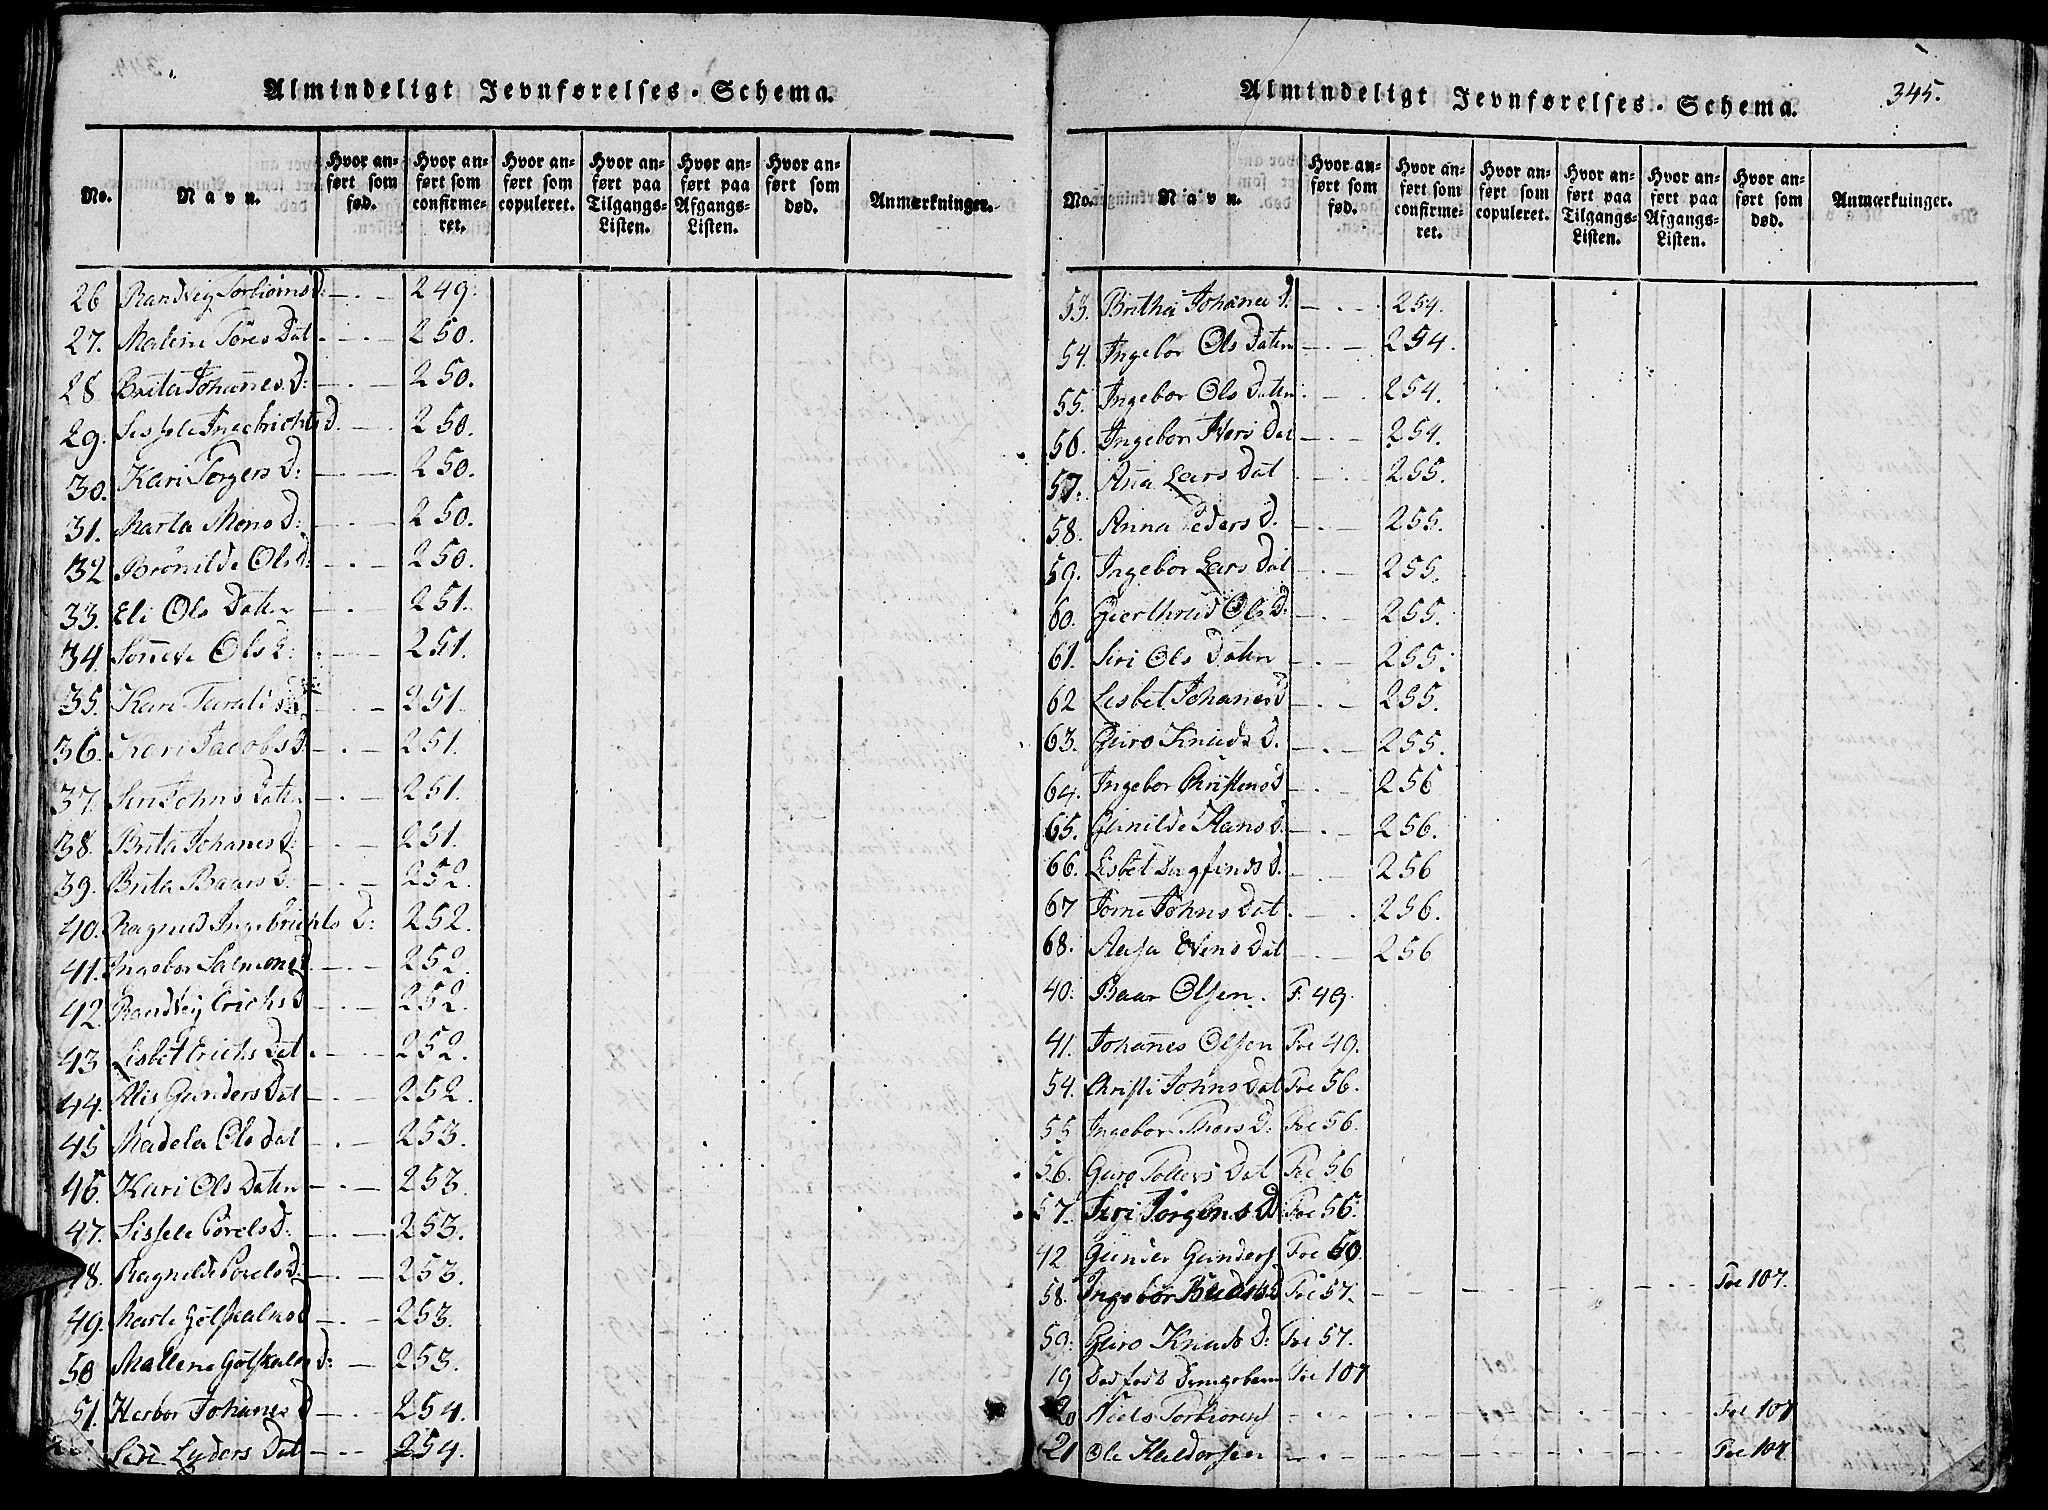 Almindeligt Jevnførelses-Schema.
No. Navn. Hvor anført som fød. Hvor anført som confirmeret. Hvor anført som copuleret. Hvor anført paa Tilgangs-Listen. Hvor anført paa Afgangs-Listen. Hvor anført som død. Anmærkninger.
26 Randveig Torbiørns D: 249.
27. Malene Tores Dat 250.
28 Brita Johannes D: 250.
29. Sissele Ingebrichts D. 250.
30. Kari Torgers D: 250.
31. Marta Mons D: 250.
32 Brönilde Ols D: 250.
33. Eli Ols Daten 251.
34. Sönneve Ols D: 251.
35. Kari 251.
36. Kari Jacobs D 251.
37. Siri Johns Daten 251.
38. Brita Johanes D: 251.
39. Brita Baars D. 252.
40. Ragnild Ingebrichts D: 252.
41. Ingebor Salmons D 252.
42. Randveig Erichs D 252.
43 Lisbet Erichs Dat 252.
44. Alis Gunders Dat 252.
45 Madela Ols Dat 253.
46. Kari Ols Daten 253.
47. Sissele Povels D. 253.
48. Ragnilde Povels D: 253.
49. Marte Götskalks D 253.
50 Mallene Götskalks D: 253.
51. Herbor Johanes D 254.
Siri Lyders Dat 254.
Almindeligt Jevnførelses-Schema.
345.
No. Navn. Hvor anført som fød. Hvor anført som confirmeret. Hvor anført som copuleret. Hvor anført paa Tilgangs-Listen. Hvor anført paa Afgangs-Listen. Hvor anført som død. Anmærkninger.
53. Britha Johanes D: 254.
54. Ingebor Ols Daten 254.
55. Ingebor Ols Daten 254.
56. Ingebor Ivers Dat 254.
57. Aña Lars Dat 255.
58. Anna Peders D. 255.
59. Ingebor Lars Dat 255.
60. Gierthrud Ols D: 255.
61. Siri Ols Daten 255.
62 Lisbet Johanes D 255.
63. Guro Knuds D. 255.
64. Ingebor Christens D 256
65. Gunilde Hans D. 256.
66. Lisbet Dagfinds D. 256
67 Torne Johns Dat 256.
68. Aasa Evens Dat 256
40. Baar Olsen. F. 49.
41. Johannes Olsen Foe 49.
54. Christi Johns Dat Foe 56.
55 Ingebor Thors D: Foe 56.
56. Guro Dat Foe 56
57. Siri Jörgens D Foe 56.
42. Gunder Gunders Foe 50.
58. Ingebor D Foe 57. Foe 107.
59. Guro Knuds D: Foe 57.
19 Dødfødt Drengebarn Foe 107
20 Niels Torbiørens Foe 107
21 Ole Haldorsen Foe 107